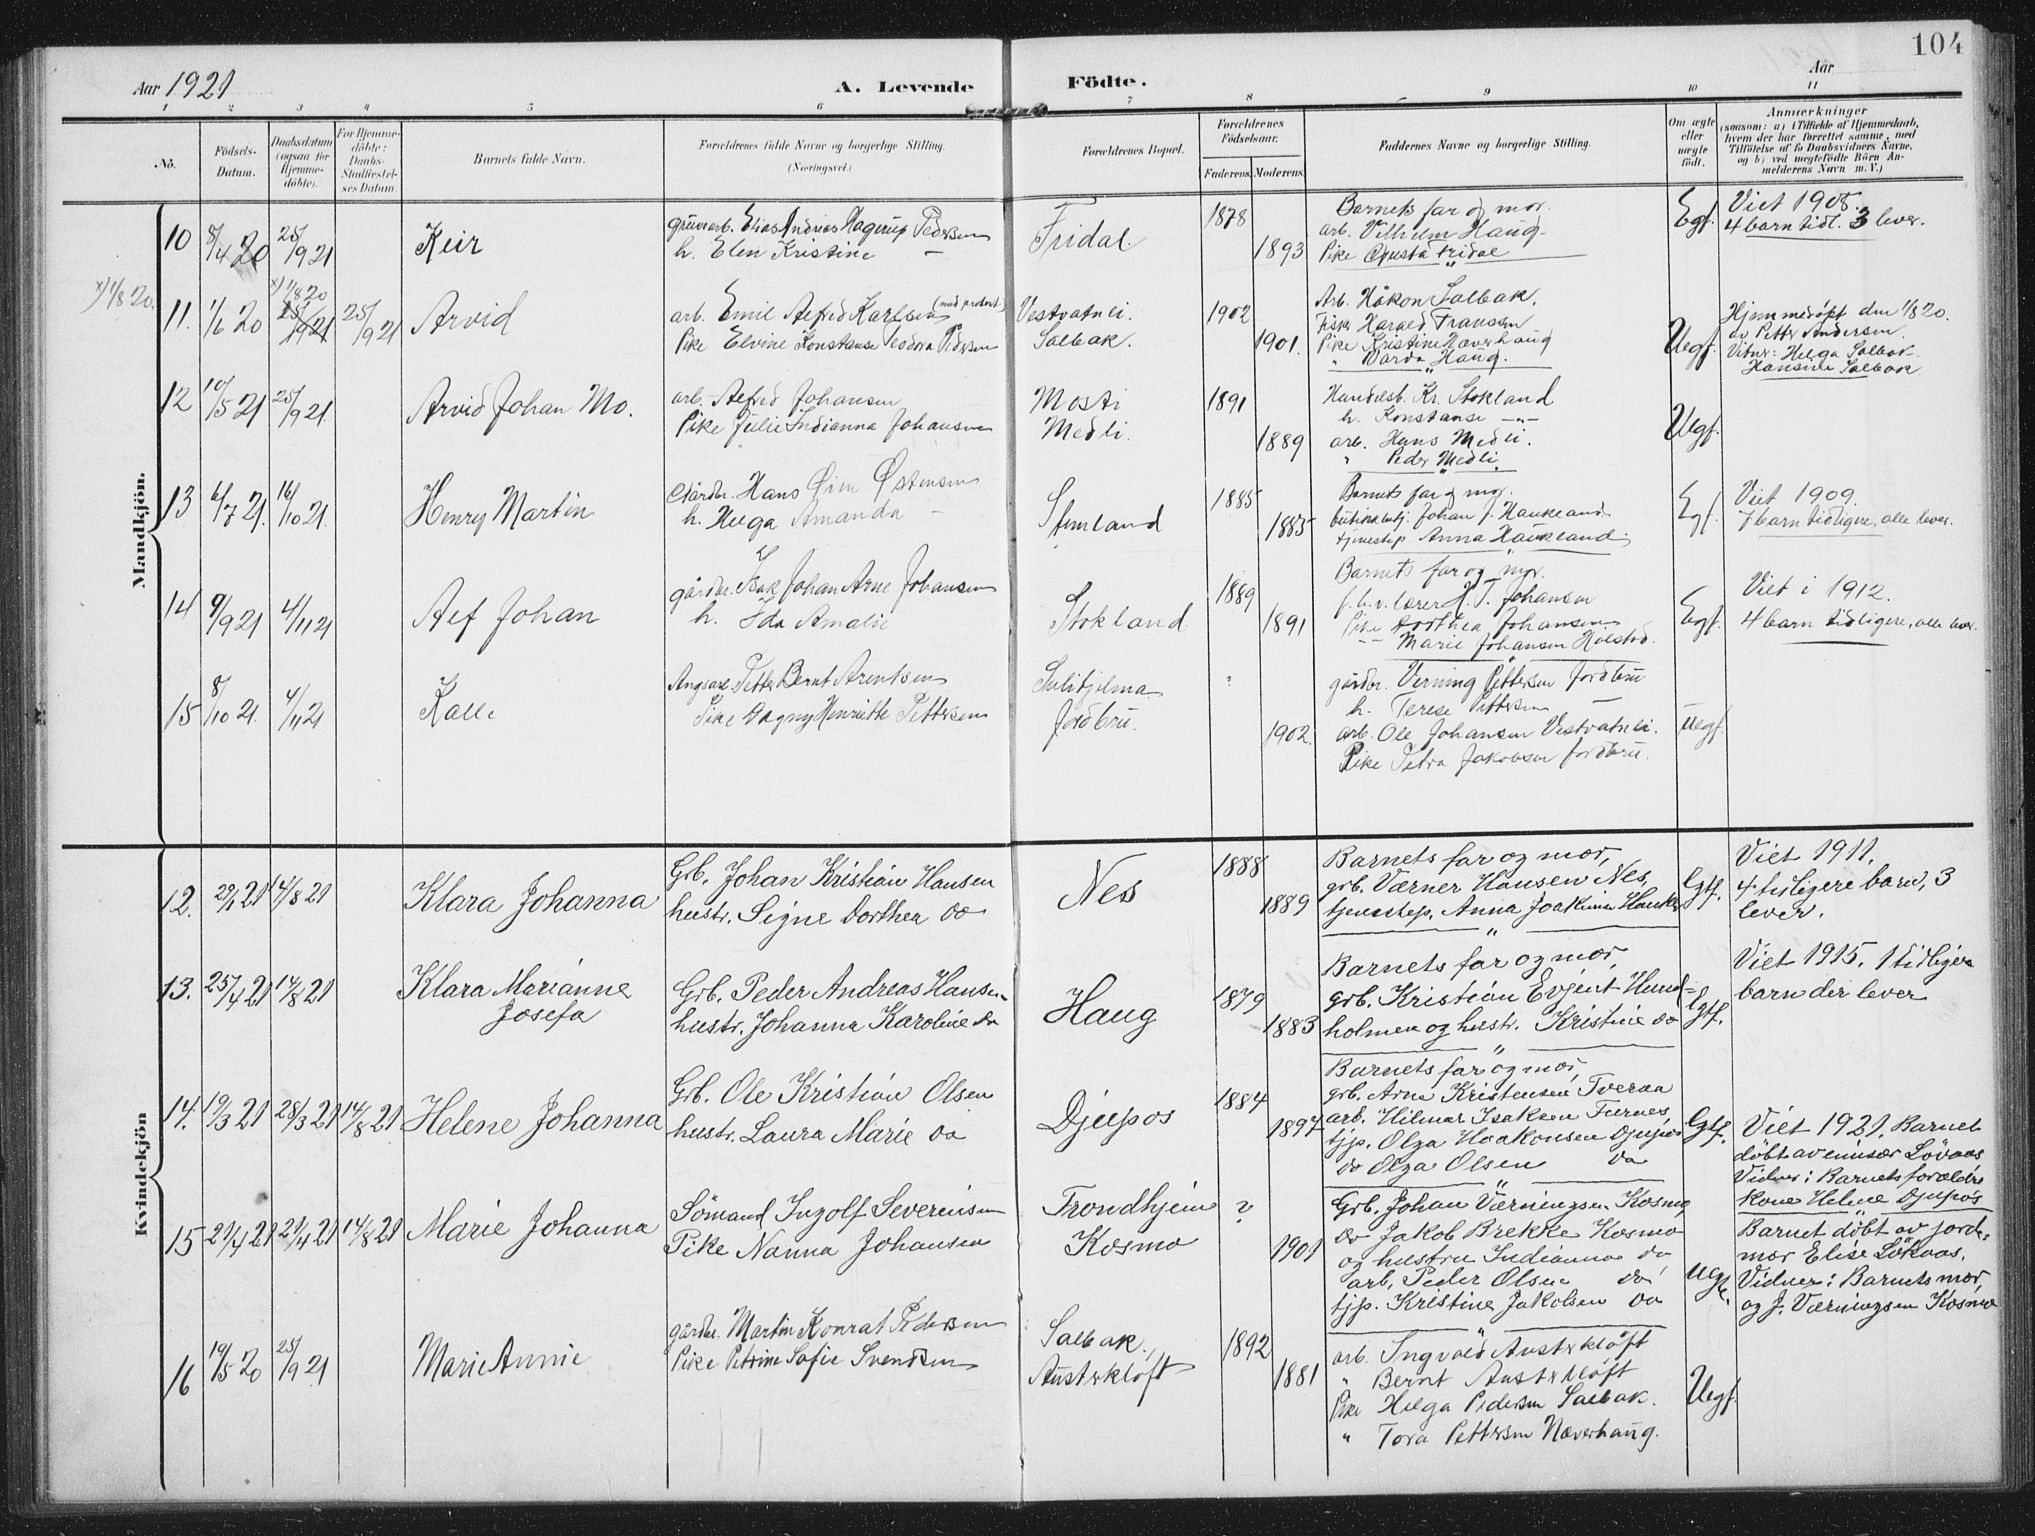 104
Aar 1921
A. Levende Födte.
Aar
1 2 3 4 5 6 7 8 9 10 11
No.
Födsels-Datum.
Daabsdatum (ogsaa for Hjemmedöbte).
For Hjemmedöbte: Daabs-Stadfæstelses Datum.
Barnets fulde Navn.
Forældrenes fulde Navne og borgerlige Stilling. (Næringsvei.)
Forældrenes Bopæl.
Forældrenes Födselsaar.
Faderens. Moderens.
Faddernes Navne og borgerlige Stilling.
Om ægte eller uægte födt.
Anmærkninger
(saasom: a) i Tilfælde af Hjemmedaab, hvem der har forrettet samme, med Tilföielse af to Daabsvidners Navne, og b) ved uegtefödte Börn Anmelderens Navn m. V.)
Mandkjön.
10 8/4 20 25/9 21 Keir
gruvearb. Elias Andreas Hagerup Pedersen
h. Elen Kristine –
Fridal.
1878
1893
Barnets far og mor.
arb. Vilhelm Haug.
Pike Gusta Fridal
Egf.
Viet 1908.
4 barn tidl. 3 lever.
x) 1/8 20.
11. 1/6 20 x) 1/8 20 25/9 21 25/9 21 Arvid
arb. Emil Alfred Karlsen
Pike Elvine Konstanse Teodora Pedersen
Vestvatnli.
Salbak.
1902
1901.
Arb. Håkon Salbak.
Fisk. Harald Franssen
Pike Kristine Næverhaug
" Warda Haug.
Uegf.
Hjemmedøpt den 1/8 20.
av Petter Andersen.
Vitner: Helga Salbak.
Hansine Salbak
12 10/5 21 25/9 21. Arvid Johan Mo.
arb. Alfred Johansen
Pike Julie Indianna Johansen
Mosti
Medli.
1891
1889
Handelsb. Kr. Stokland
h. Konstanse –"–
arb. Hans Medli.
" Peder Medli.
Uegf.
13 6/7 21. 16/10 21. Henry Martin
Gårdbr. Hans Øim Østensen
h. Helga Amanda –
Stemland
1885
1885
Barnets far og mor.
butikkbetj. Johan J. Haukland
tjenestep. Anna Haukland.
Egf.
Viet 1909.
7 barn tidligere, alle lever.
14 9/9 21 4/11 21 Alf Johan
gårdbr. Isak Johan Arne Johansen
h. Ida Amalie
Stokland
1889
1891
Barnets far og mor.
f.h.v. lærer H. T. Johansen
Pike Dorthea Johansen
–"– Marie Johansen Holstad.
Egf.
Viet i 1912.
4 barn tidligere, alle lever.
15 8/10 21. 4/11 21 Kalle
Petter Bernt Arentsen
Pike Dagny Henriette Pettersen
Sulitjelma
Jordbru.
?
1902.
gårdbr. Verning Pettersen Jordbru
h. Terese Pettersen –
arb. Ole Johansen Vestvatnli.
Pike Petra Jakobsen Jordbru.
Uegf.
Kvindekjön
12. 29/1 21 14/8 21 Klara Johanna
Grb. Johan Kristian Hansen
hustr. Signe Dorthea do
Nes
1888
1889
Barnets far og mor,
grb. Værner Hansen Nes,
tjenestep. Anna Joakime Hauk
Egtf.
Viet 1911.
4 tidligere barn, 3
lever.
13. 25/4 21 14/8 21 Klara Marianne
Josefa
Grb. Peder Andreas Hansen
hustr. Johanna Karoline do
Haug
1879
1883
Barnets far og mor,
grb. Kristian Evjent Hund=
holmen og hustr. Kristine do
Egtf.
Viet 1915. 1 tidligere
barn der lever
14. 19/3 21 28/3 21 14/8 21 Helene Johanna
Grb. Ole Kristian Olsen
hustr. Laura Marie do
Djupos
1884
1897
Barnets far og mor,
grb. Arne Kristensen Tveraa
arb. Hilmar Isaksen Furnes,
tjp. Olga Haakonsen Djupos
do Olga Olsen do
Egtf.
Viet 1921. Barnet
døbt av emisær Lövaas
Vidner: Barnets forældre
kone Helene Djupos
15 21/4 21 29/4 21 14/8 21 Marie Johanna
Sömand Ingolf Severinsen
Pike Nanna Johansen
Trondhjem
Kosmo
?
1901
Grb. Johan Værningsen Kosmo
do Jakob Brekke Kosmo
og hustru Indianna do
arb. Peder Olsen do
tjp. Kristine Jakobsen do
Uegt.
Barnet døbt av jorde-
mor Elise Lökaas.
Vidner: Barnets mor,
og J. Værningsen Kosmo
16 19/5 20 25/9 21 Marie Annie
gårdbr. Martin Konrat Pedersen
Pike Petrine Sofie Svendsen
Salbak.
Austerkløft
1892
1881
arb. Ingvald Austerkløft
" Bernt Austerkløft
Pike Helga Pedersen Salbak.
" Tora Pettersen Næverhaug.
Uegf.